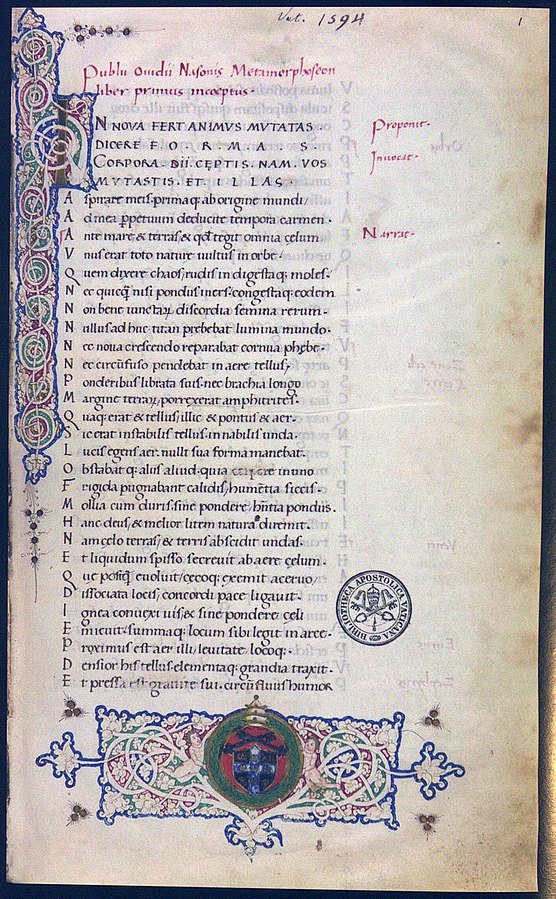 Vat. 1594
1
Publii Ovidii Nasonis Metamorphoseon
liber primus incoeptus.
IN NOVA FERT ANIMVS MVTATAS
Proponit.
DICERE FORMAS
CORPORA. DII. CEPTIS. NAM. VOS
Invocat.
MVTASTIS. ET ILLAS.
A spirate meis. primaq; ab origine mundi
A d mea ꝑpetuum deducite tempora carmen.
A nte mare & terras & qđ tegit omnia celum
Narrat.
V nus erat toto nature vultus in orbe.
Q uem dixere chaos, rudis indigestaq; moles.
N ec quicq̃ nisi pondus iners. congestaq; eodem
N on bene iunctarꝝ discordia semina rerum.
N ullus adhuc titan prebebat lumina mundo.
N ec nova crescendo reparabat cornua phebe.
N ec circũfuso pendebat in aere tellus,
P onderibus librata suis. nec brachia longo
M argine terrarꝝ porrexerat amphitrites.
Q uaq; erat & tellus, illic & pontus & aer.
S ic erat instabilis tellus. innabilis unda.
L ucis egens aer. nulli sua forma manebat.
O bstabatq; aliis aliud. quia corpore in uno
F rigida pugnabant calidis, humentia siccis.
M ollia cum duris. sine pondere hñtia pondus.
H anc deus, & melior litem natura diremit.
N am celo terras, & terris abscidit undas.
E t liquidum spisso secrevit ab aere celum.
Q ue postq̃ evoluit, cecoq; exemit acervo,
D issociata locis, concordi pace ligavit.
I gnea convexi vis, & sine pondere celi
E micuit. summaq; locum sibi legit in arce.
P roximus est aer illi levitate locoq;.
D ensior his tellus. elementaq; grandia traxit.
E t pressa est gravitate sui. circũfluus humor
BIBLIOTHECA APOSTOLICA VATICANA